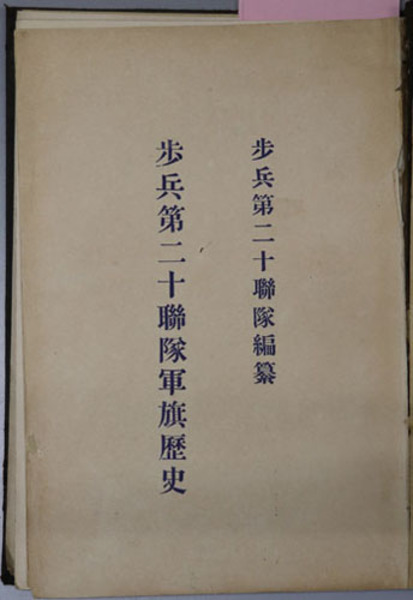 步兵第二十聯隊編纂
步兵第二十聯隊軍旗歷史